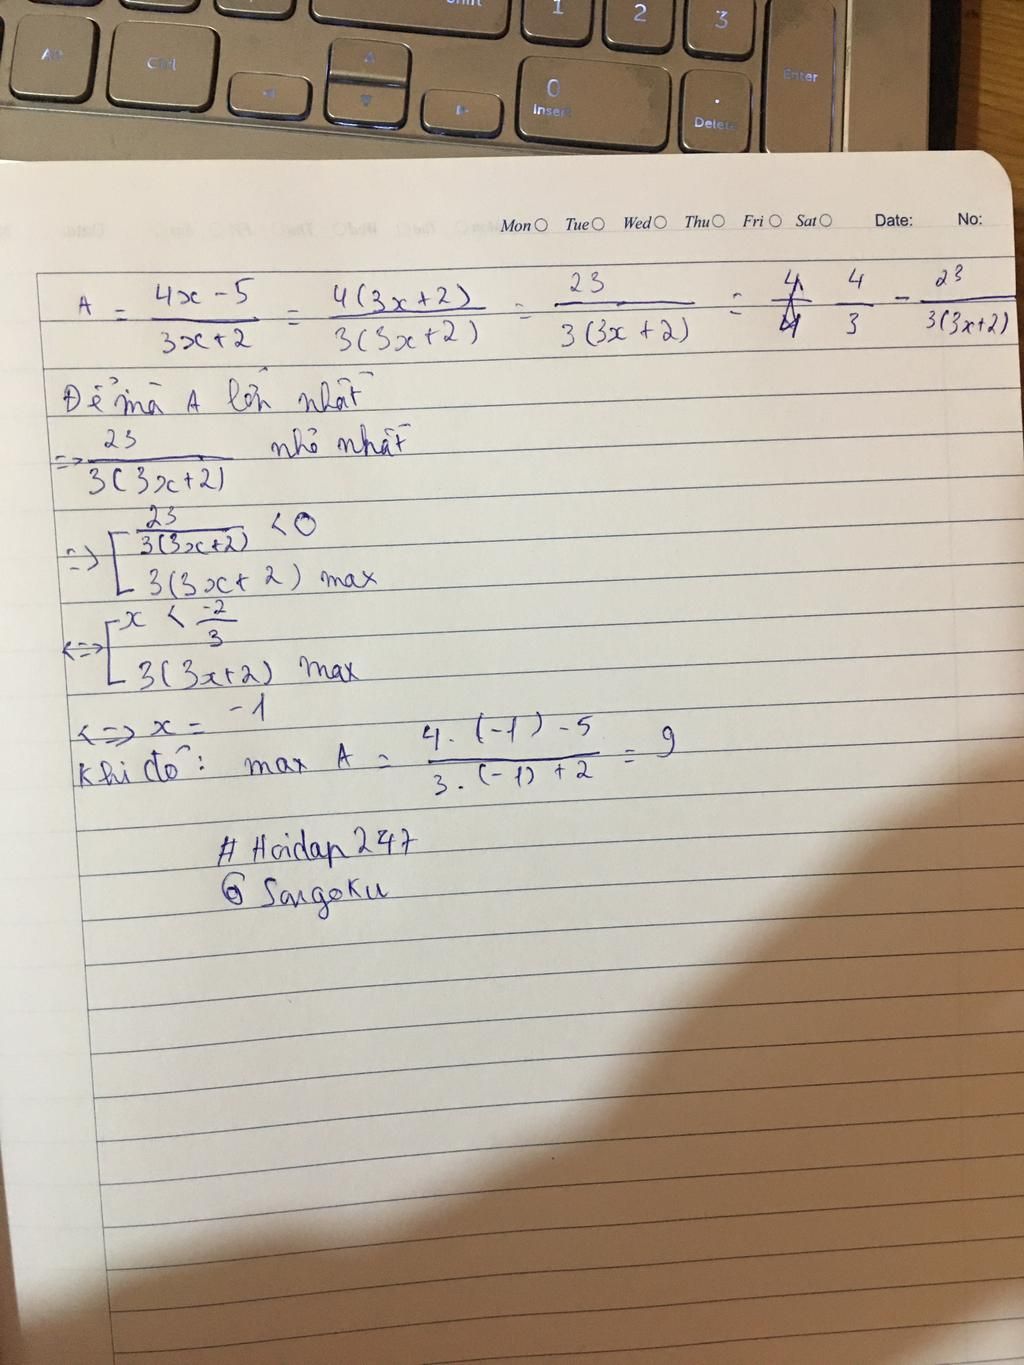 Shift 1 2 3
Alt Ctrl 0 Insert . Delete Enter
Mon Tue Wed Thu Fri Sat Date: No:
A = (4x - 5)/(3x + 2) = 4(3x + 2)/3(3x + 2) = 23/3(3x + 2) = 4/3 - 23/3(3x+2)
Để mà A lớn nhất
=> 23/3(3x+2) nhỏ nhất
=> [ 23/3(3x+2) < 0
3(3x+2) max
<=> [ x < -2/3
3(3x+2) max
<=> x = -1
Khi đó: max A = (4.(-1) - 5)/(3.(-1) + 2) = 9
# Hoidap 247
Songoku